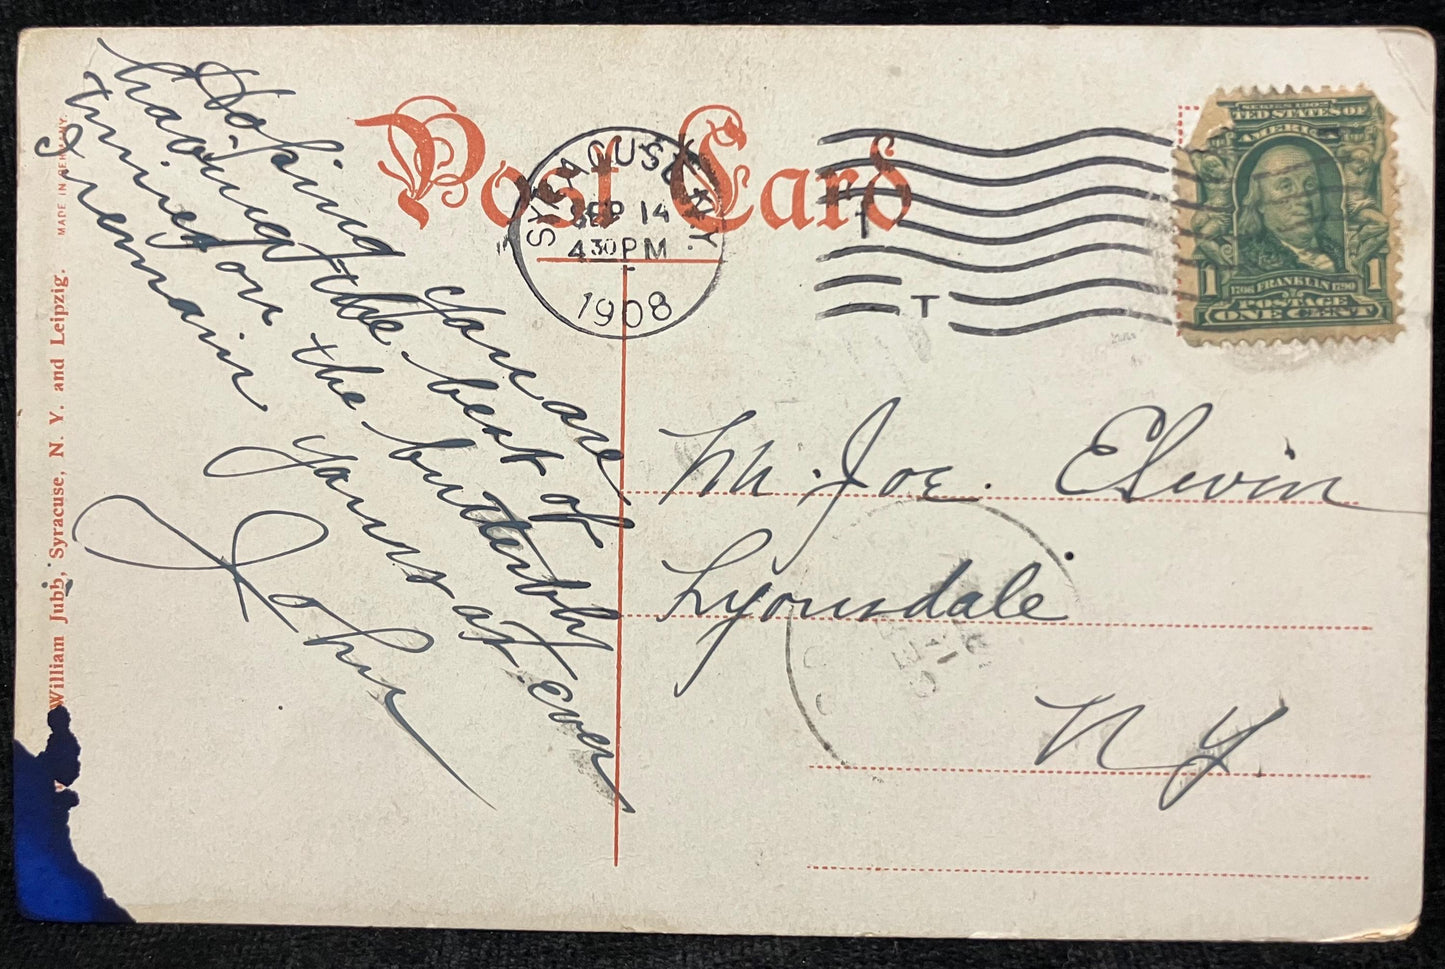 Post Card
SYRACUSE N.Y.
SEP 14
430 PM
1908
T
T
SERIES 1902
UNITED STATES OF
AMERICA
1 1
1706 FRANKLIN 1790
POSTAGE
ONE CENT
Hoping you are
having the best of
times on the butterbly
I remain yours as ever
John
Mr. Joe. Elwin
Lyonsdale
N Y
MADE IN GERMANY.
William Jubb, Syracuse, N. Y. and Leipzig.